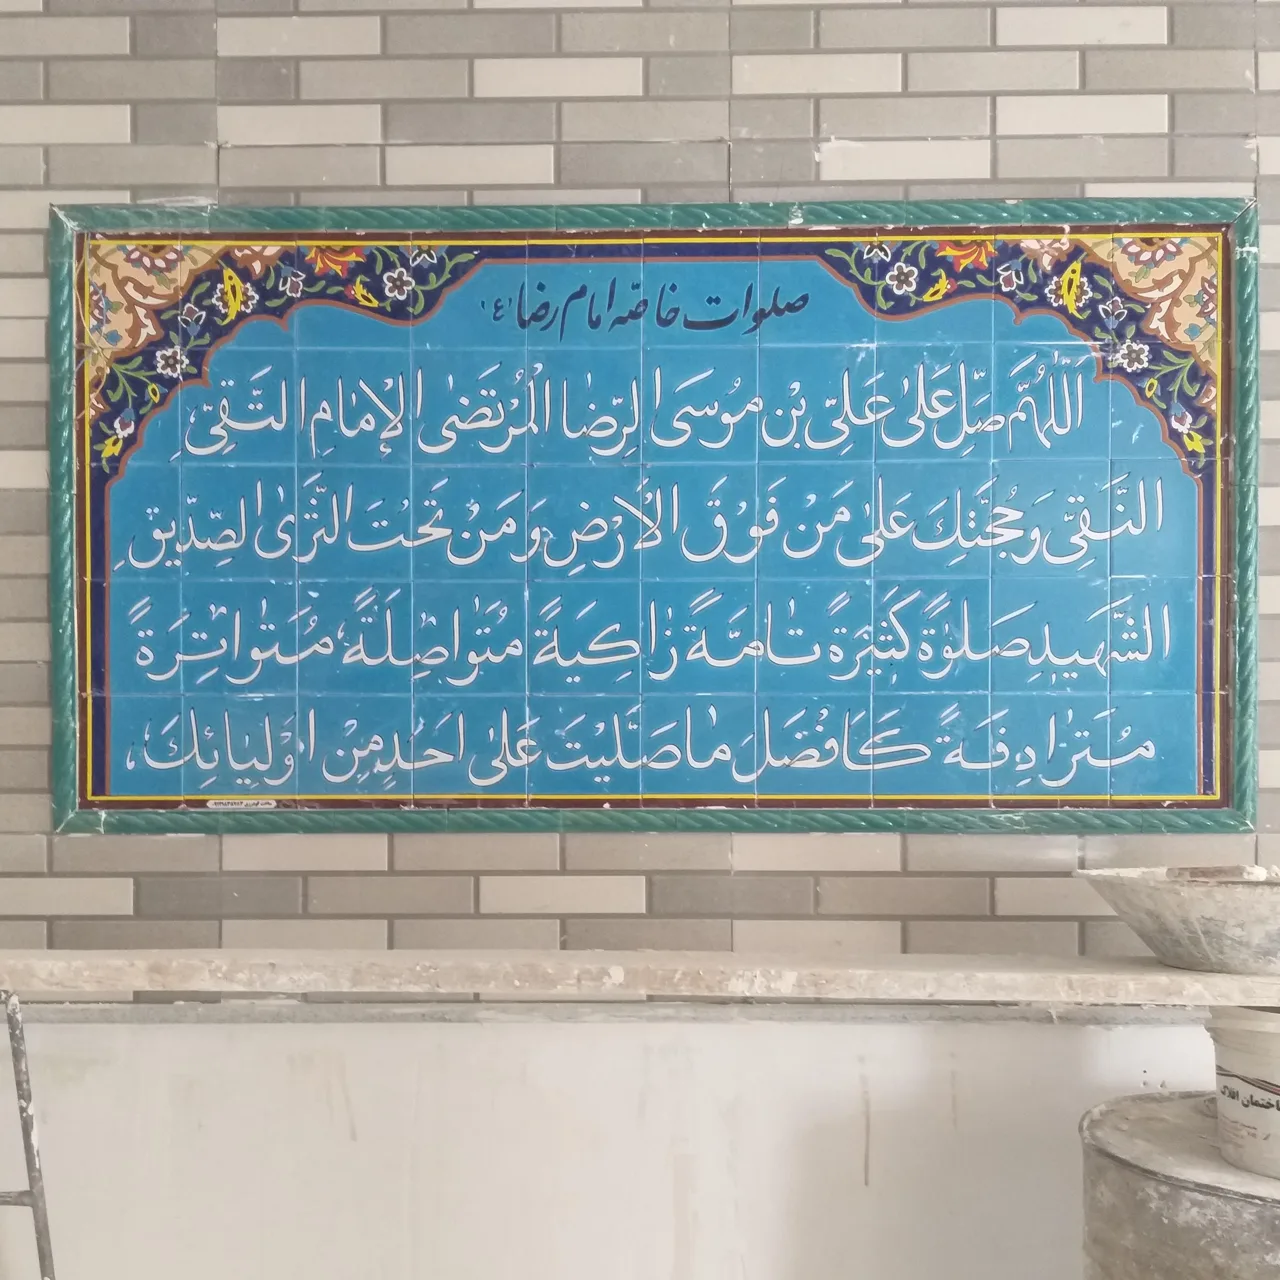 صلوات خاصّه امام رضا (ع)
اَللّٰهُمَّ صَلِّ عَلىٰ عَلِیِّ بْنِ مُوسَى الرِّضَا الْمُرْتَضىٰ الْإِمٰامِ التَّقِىِّ
النَّقِىِّ وَحُجَّتِكَ عَلىٰ مَنْ فَوْقَ الْاَرْضِ وَمَنْ تَحْتَ الثَّرىٰ الصِّدّيقِ
الشَّهيدِ صَلوٰةً كَثيرَةً تٰامَّةً زٰاكِيَةً مُتَوٰاصِلَةً مُتَوٰاتِرَةً
مُتَرٰادِفَةً كَاَفْضَلِ مٰا صَلَّيْتَ عَلىٰ اَحَدٍ مِنْ اَوْلِيٰائِكَ
ساختمان افلاک